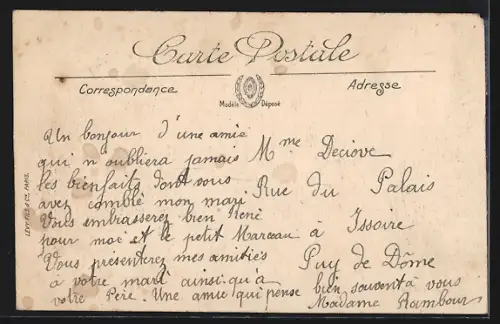 Carte Postale
Correspondance
Adresse
Modèle Déposé
LEVY FILS & Cie, PARIS
Un bonjour d'une amie
qui n'oubliera jamais
les bienfaits dont vous
avez comblé mon mari
Vous embrasserez bien René
pour moi et le petit Marceau
Vous présenterez mes amitiés
à votre mari ainsi qu'à
votre Père. Une amie qui pense
bien souvent à vous
Madame Rambour
Mme Deciove
Rue du Palais
à Issoire
Puy de Dôme